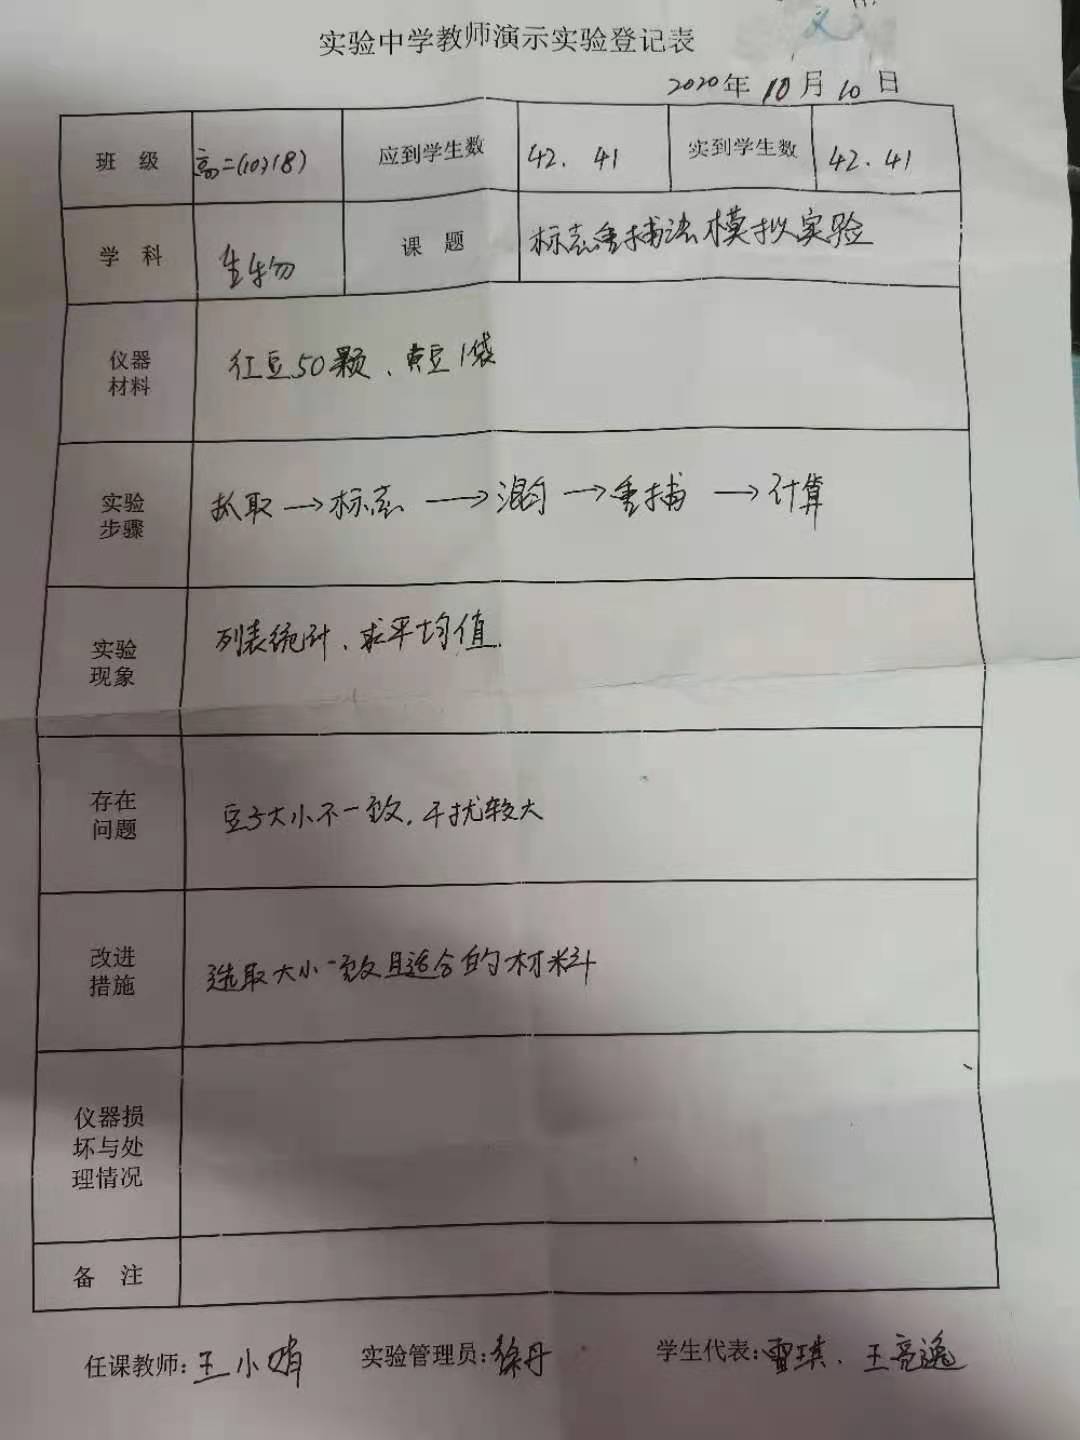 实验中学教师演示实验登记表
2020年 10月 10日
班 级 高二(10)(18) 应到学生数 42. 41 实到学生数 42. 41
学 科 生物 课 题 标志重捕法模拟实验
仪器
材料
红豆50颗、黄豆1袋
实验
步骤
抓取→标志→混匀→重捕→计算
实验
现象
列表统计、求平均值.
存在
问题
豆子大小不一致,干扰较大
改进
措施
选取大小一致且适合的材料
仪器损
坏与处
理情况
备 注
任课教师:王小娟 实验管理员:徐丹 学生代表:雷琪、王亮逸